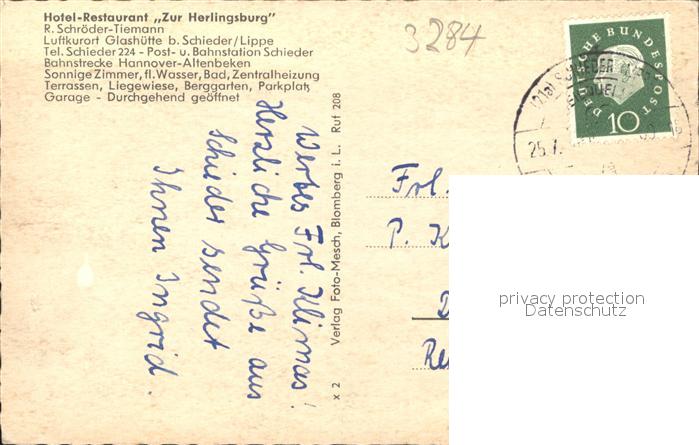 Hotel-Restaurant „Zur Herlingsburg"
R. Schröder-Tiemann
Luftkurort Glashütte b. Schieder/Lippe
Tel. Schieder 224 - Post- u. Bahnstation Schieder
Bahnstrecke Hannover-Altenbeken
Sonnige Zimmer, fl. Wasser, Bad, Zentralheizung
Terrassen, Liegewiese, Berggarten, Parkplatz
Garage - Durchgehend geöffnet
3284
DEUTSCHE BUNDESPOST
10
(21a) SCHIEDER
25.7.
Wertes Frl. Klimas!
Herzliche Grüße aus
Schieder sendet
Ihnen Ingrid.
x 2 Verlag Foto-Mesch, Blomberg i. L. Ruf 208
Frl.
P. K
D
Re
privacy protection
Datenschutz